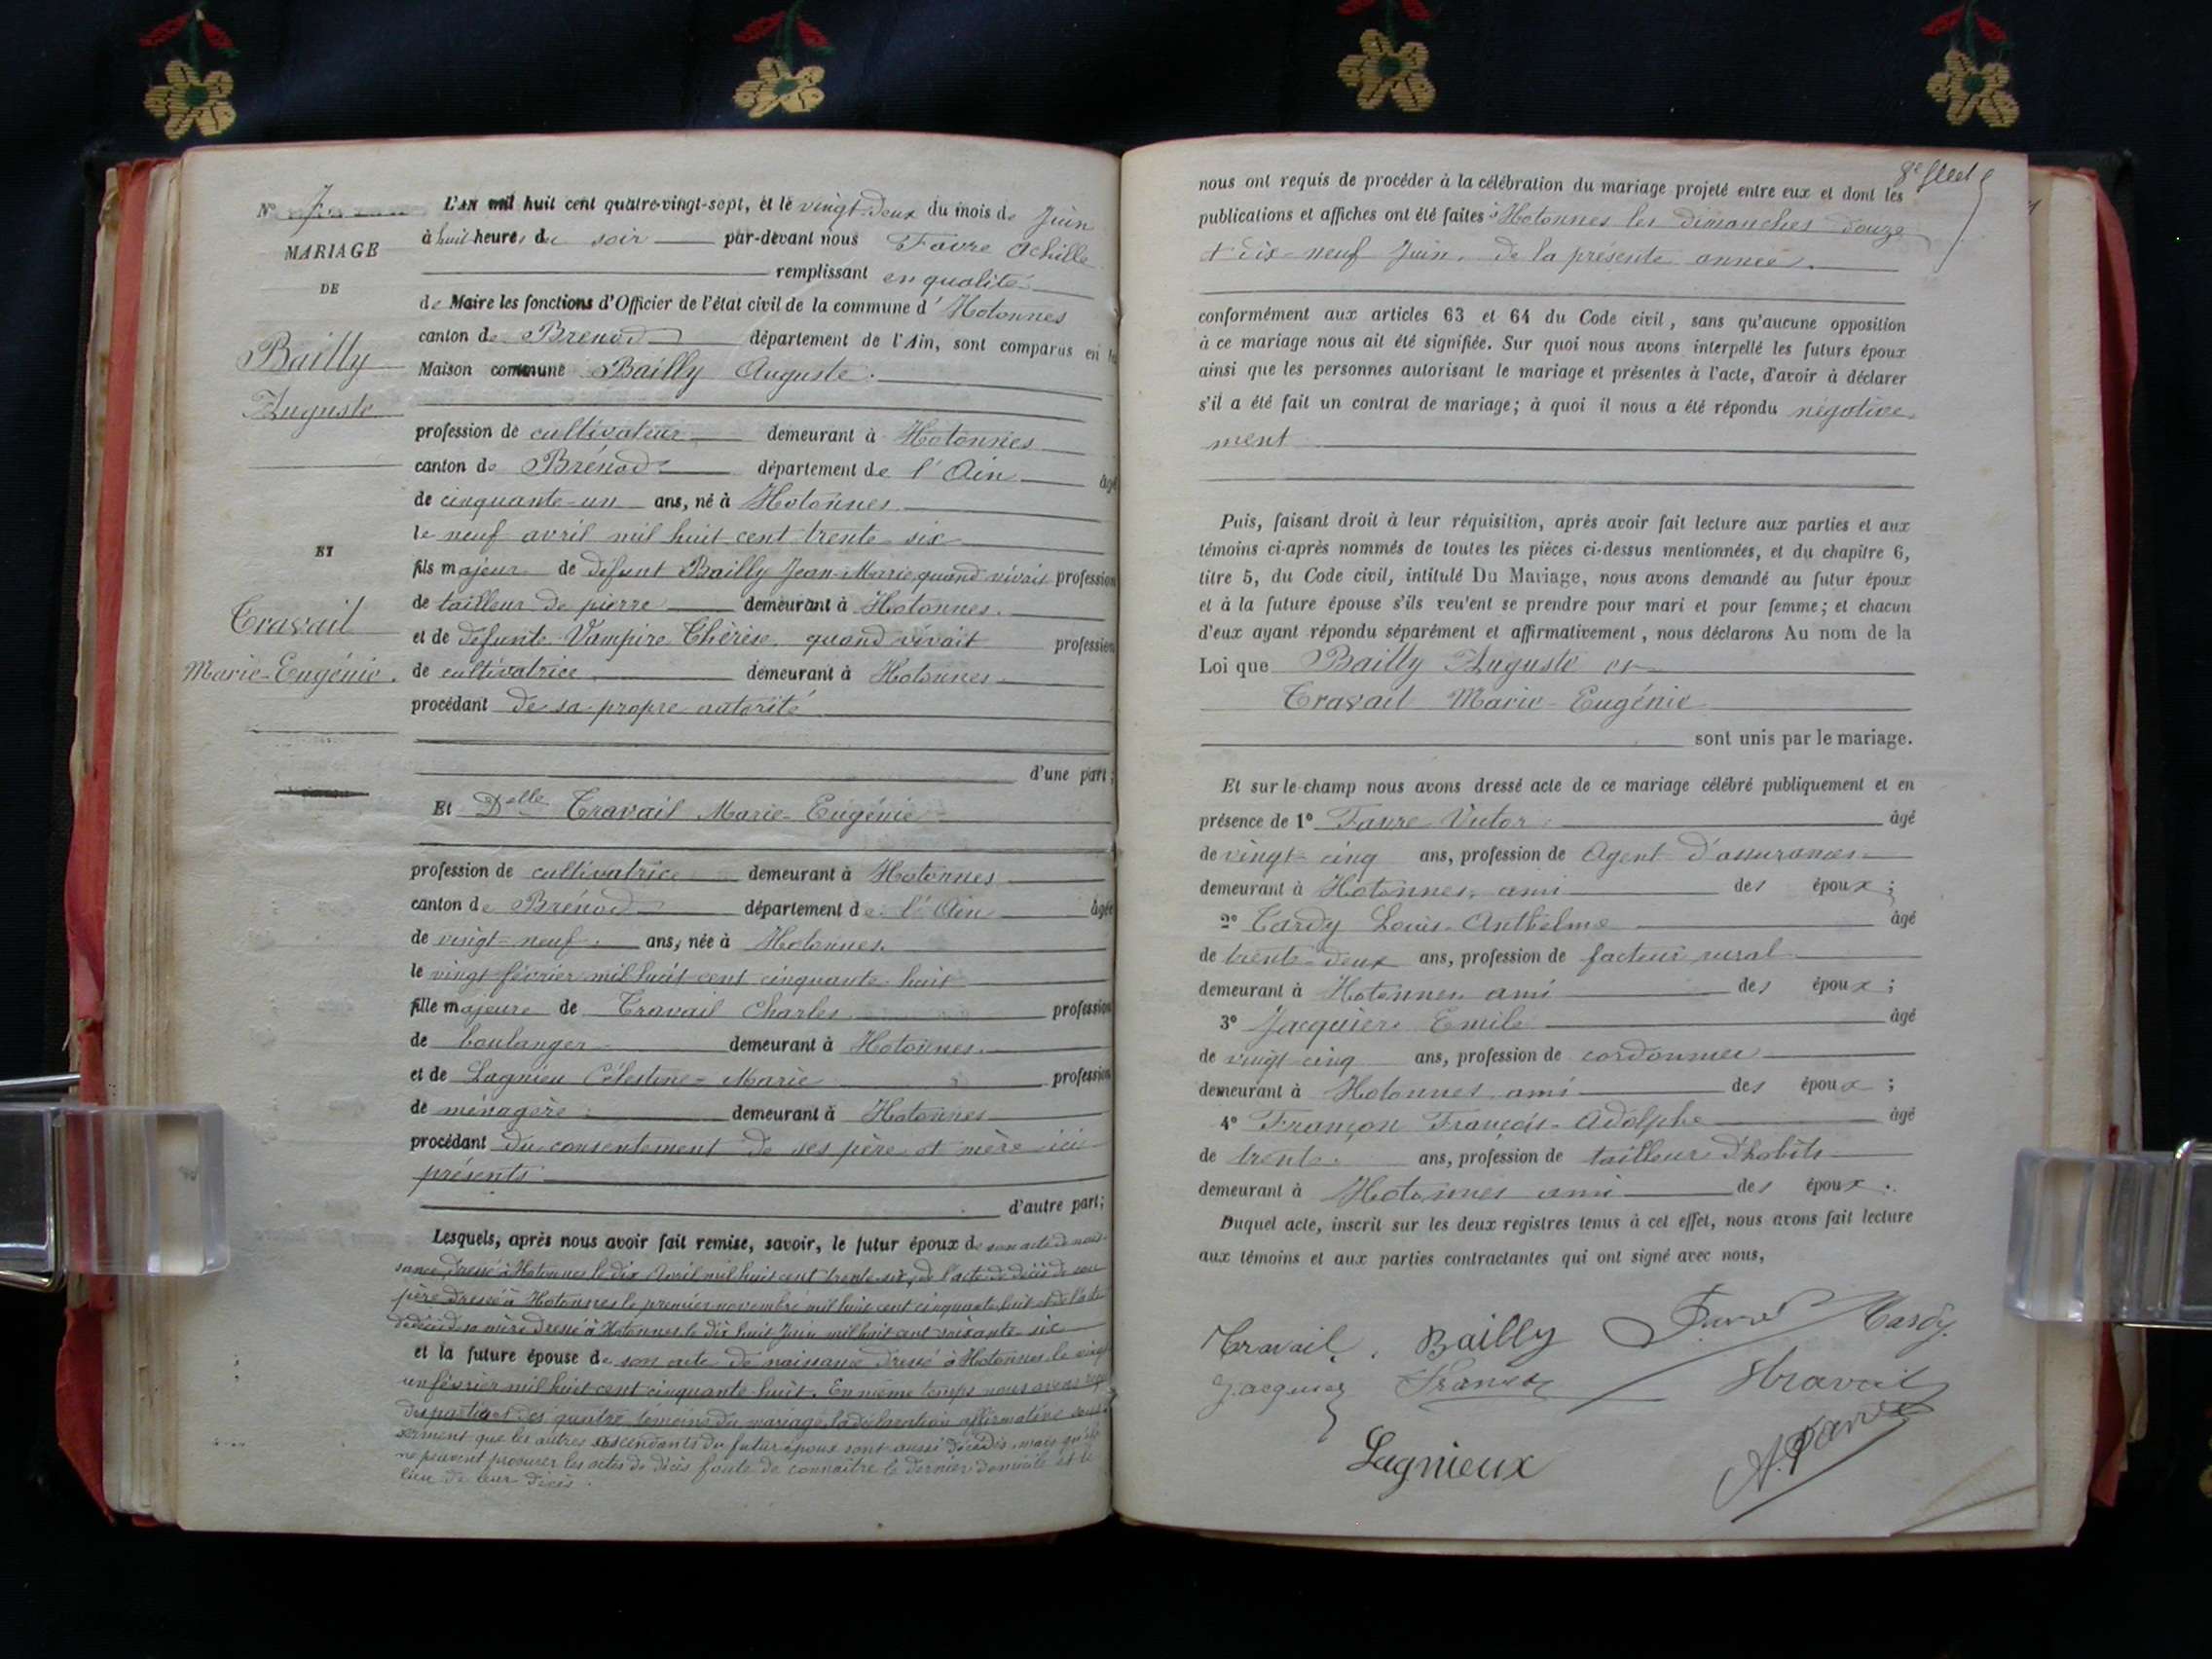 N° 7
MARIAGE
DE
Bailly
Auguste
ET
Travail
Marie-Eugénie.
L'an mil huit cent quatre-vingt-sept, et le vingt-deux du mois de Juin
à huit heures du soir par-devant nous Favre Achille
remplissant en qualité
de Maire les fonctions d'Officier de l'état civil de la commune d'Hotonnes
canton de Brénod département de l'Ain, sont comparus en la
Maison commune Bailly Auguste.
profession de cultivateur demeurant à Hotonnes
canton de Brénod département de l'Ain âgé
de cinquante-un ans, né à Hotonnes
le neuf avril mil huit cent trente six
fils majeur de défunt Bailly Jean-Marie quand vivait profession
de tailleur de pierre demeurant à Hotonnes.
et de défunte Vampire Thérèse quand vivait profession
de cultivatrice demeurant à Hotonnes
procédant de sa propre autorité
d'une part;
Et Delle Travail Marie-Eugénie
profession de cultivatrice demeurant à Hotonnes
canton de Brénod département de l'Ain âgée
de vingt-neuf ans, née à Hotonnes
le vingt février mil huit cent cinquante-huit
fille majeure de Travail Charles profession
de boulanger demeurant à Hotonnes.
et de Lagnieu Célestine-Marie profession
de ménagère demeurant à Hotonnes
procédant du consentement de ses père et mère ici
présents
d'autre part;
Lesquels, après nous avoir fait remise, savoir, le futur époux de son acte de nais-
sance dressé à Hotonnes le dix Avril mil huit cent trente-six, de l'acte de décès de son
père dressé à Hotonnes le premier novembre mil huit cent cinquante huit et de l'acte
de décès de sa mère dressé à Hotonnes le dix huit Juin mil huit cent soixante-six
et la future épouse de son acte de naissance dressé à Hotonnes le vingt
un février mil huit cent cinquante-huit. En même temps nous avons reçu
des parties et des quatre témoins du mariage la déclaration affirmative sous
serment que les autres ascendants du futur époux sont aussi décédés mais qu'ils
ne peuvent procurer les actes de décès faute de connaître le dernier domicile et le
lieu de leur décès.
nous ont requis de procéder à la célébration du mariage projeté entre eux et dont les
publications et affiches ont été faites à Hotonnes les dimanches douze
et dix-neuf Juin, de la présente année.
conformément aux articles 63 et 64 du Code civil, sans qu'aucune opposition
à ce mariage nous ait été signifiée. Sur quoi nous avons interpellé les futurs époux
ainsi que les personnes autorisant le mariage et présentes à l'acte, d'avoir à déclarer
s'il a été fait un contrat de mariage; à quoi il nous a été répondu négative
ment
Puis, faisant droit à leur réquisition, après avoir fait lecture aux parties et aux
témoins ci-après nommés de toutes les pièces ci-dessus mentionnées, et du chapitre 6,
titre 5, du Code civil, intitulé Du Mariage, nous avons demandé au futur époux
et à la future épouse s'ils veu'ent se prendre pour mari et pour femme; et chacun
d'eux ayant répondu séparément et affirmativement, nous déclarons Au nom de la
Loi que Bailly Auguste et
Travail Marie-Eugénie
sont unis par le mariage.
Et sur-le-champ nous avons dressé acte de ce mariage célébré publiquement et en
présence de 1° Favre Victor âgé
de vingt-cinq ans, profession de Agent d'assurances
demeurant à Hotonnes, ami des époux;
2° Tardy Louis-Anthelme âgé
de trente-deux ans, profession de facteur rural
demeurant à Hotonnes ami des époux;
3° Jacquier Emile âgé
de vingt-cinq ans, profession de cordonnier
demeurant à Hotonnes ami des époux;
4° Françon François-Adolphe âgé
de trente ans, profession de tailleur d'habits
demeurant à Hotonnes ami des époux.
Duquel acte, inscrit sur les deux registres tenus à cet effet, nous avons fait lecture
aux témoins et aux parties contractantes qui ont signé avec nous,
Travail Bailly Favre Tardy
Jacquier Françon Travail
Lagnieux A. Favre